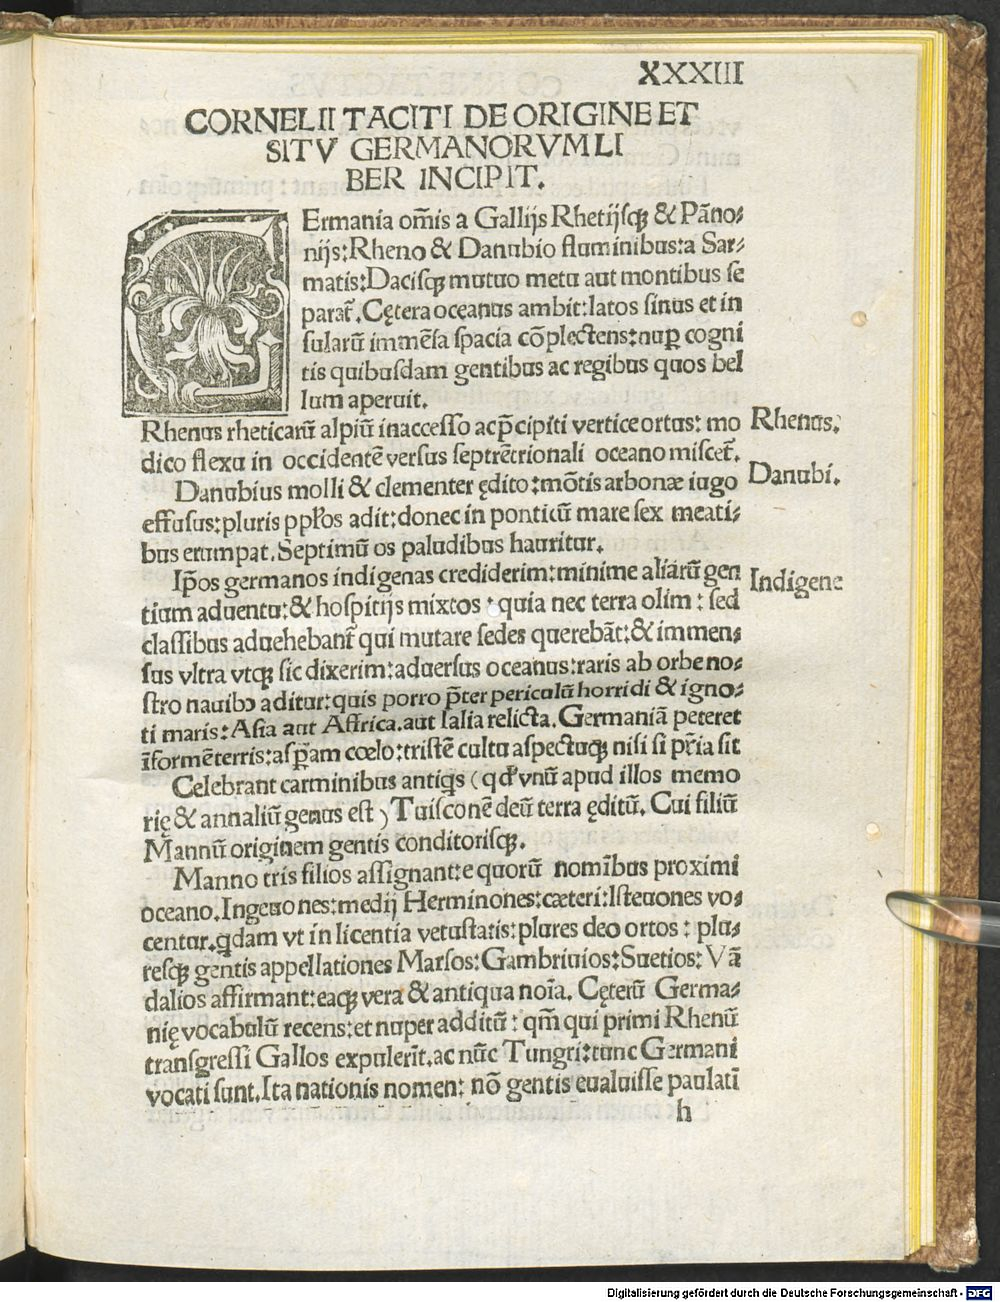 XXXIII
CORNELII TACITI DE ORIGINE ET
SITV GERMANORVM LI
BER INCIPIT.
GErmania om̄is a Gallijs Rhetijsqꝫ & Pāno⸗
nijs: Rheno & Danubio fluminibus: a Sar⸗
matis: Dacisqꝫ mutuo metu aut montibus se
parat̄. Cętera oceanus ambit: latos sinus et in
sularū immēsa spacia cōplectens: nuꝑ cogni
tis quibusdam gentibus ac regibus quos bel
lum aperuit.
Rhenus rheticarū alpiū inaccesso ac p̄cipiti vertice ortus: mo
dico flexu in occidentē versus septrētrionali oceano miscet̄.
Danubius molli & clementer ędito: mōtis arbonæ iugo
effusus: pluris ppłos adit: donec in ponticū mare sex meati⸗
bus erumpat. Septimū os paludibus hauritur.
Ip̄os germanos indigenas crediderim: minime aliarū gen
tium aduentu: & hospitijs mixtos: quia nec terra olim: sed
classibus aduehebant̄ qui mutare sedes querebāt: & immen⸗
sus vltra vtqꝫ sic dixerim: aduersus oceanus: raris ab orbe no⸗
stro nauibꝯ aditur: quis porro p̄ter periculū horridi & igno⸗
ti maris: Asia aut Affrica. aut Ialia relicta. Germaniā peteret
īformē terris: asꝑam cœlo: tristē cultu aspectuqꝫ nisi si pr̄ia sit
Celebrant carminibus antiq̄s (qđ vnū apud illos memo
rię & annaliū genus est) Tuisconē deū terra ęditū. Cui filiū
Mannū originem gentis conditorisqꝫ.
Manno tris filios assignant: e quorū nomībus proximi
oceano. Ingeuones: medij Herminones: cæteri: Isteuones vo⸗
centur. q̄dam vt in licentia vetustatis: plures deo ortos: plu⸗
resqꝫ gentis appellationes Marsos: Gambriuios: Suetios: Vā
dalios affirmant: eaqꝫ vera & antiqua noīa. Cęterū Germa⸗
nię vocabulū recens: et nuper additū: qm̄ qui primi Rhenū
transgressi Gallos expulerīt. ac nūc Tungri: tunc Germani
vocati sunt. Ita nationis nomen: nō gentis eualuisse paulatī
h
Rhenus.
Danubi.
Indigene
Digitalisierung gefördert durch die Deutsche Forschungsgemeinschaft - DFG